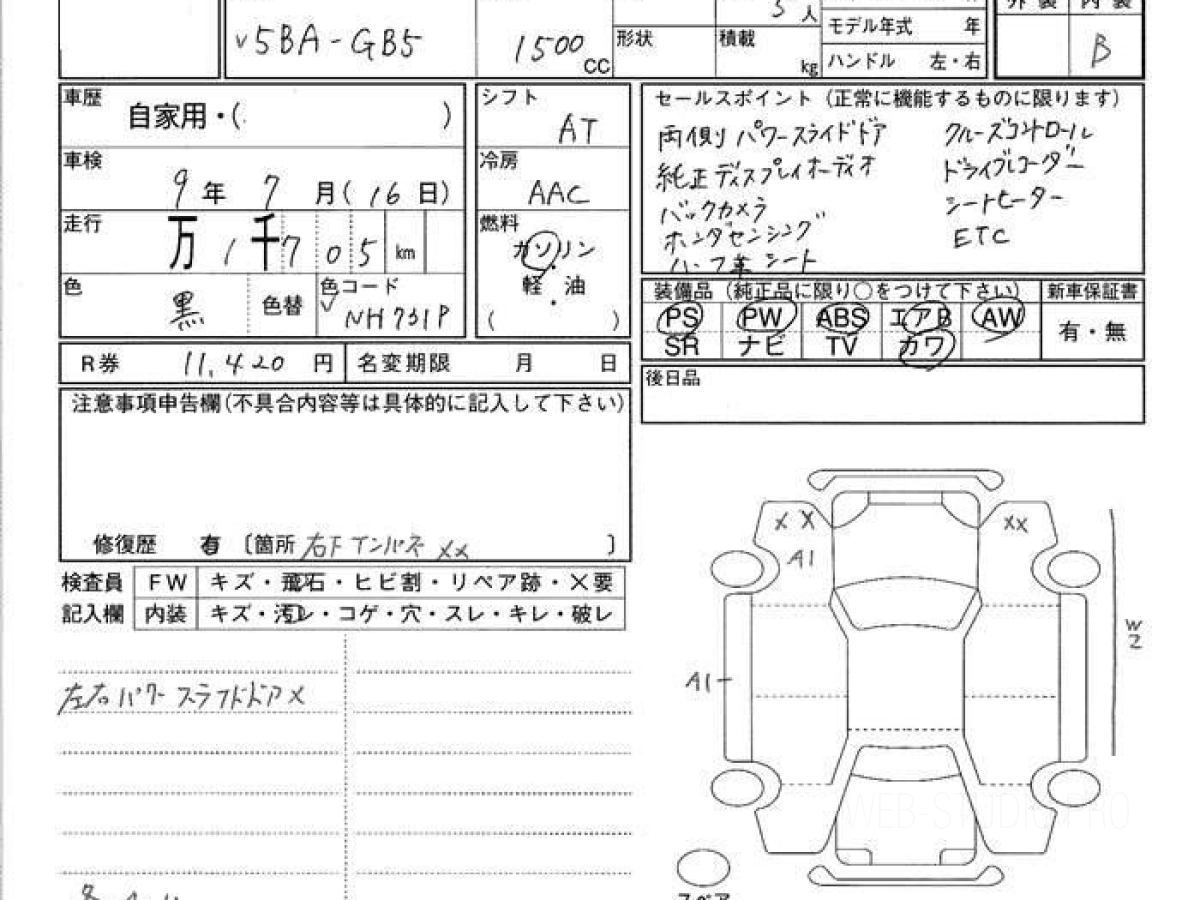 外 装 内 装
5 人
モデル年式 年
v5BA-GB5
1500 CC
形状 積載 kg
ハンドル 左・右
B
車歴 自家用・( )
シフト AT
車検 9 年 7 月( 16 日)
冷房 AAC
走行 万 1 千 7 0 5 km
燃料 ガソリン・軽・油
( )
色 黒 色替 色コード NH731P
セールスポイント (正常に機能するものに限ります)
両側パワースライドドア クルーズコントロール
純正ディスプレイオーディオ ドライブレコーダー
バックカメラ シートヒーター
ホンダセンシング ETC
ハーフ革シート
装備品 (純正品に限り○をつけて下さい) 新車保証書
PS PW ABS エアB AW 有・無
SR ナビ TV カワ
R券 11,420 円 名変期限 月 日
後日品
注意事項申告欄(不具合内容等は具体的に記入して下さい)
修復歴 〔箇所 右F インパネ XX 〕
検査員 FW キズ・飛石・ヒビ割・リペア跡・×要
記入欄 内装 キズ・汚レ・コゲ・穴・スレ・キレ・破レ
左右パワースライドドアX
X X
A1
XX
A1
W2
WEB-STUDIO.PRO
スペア